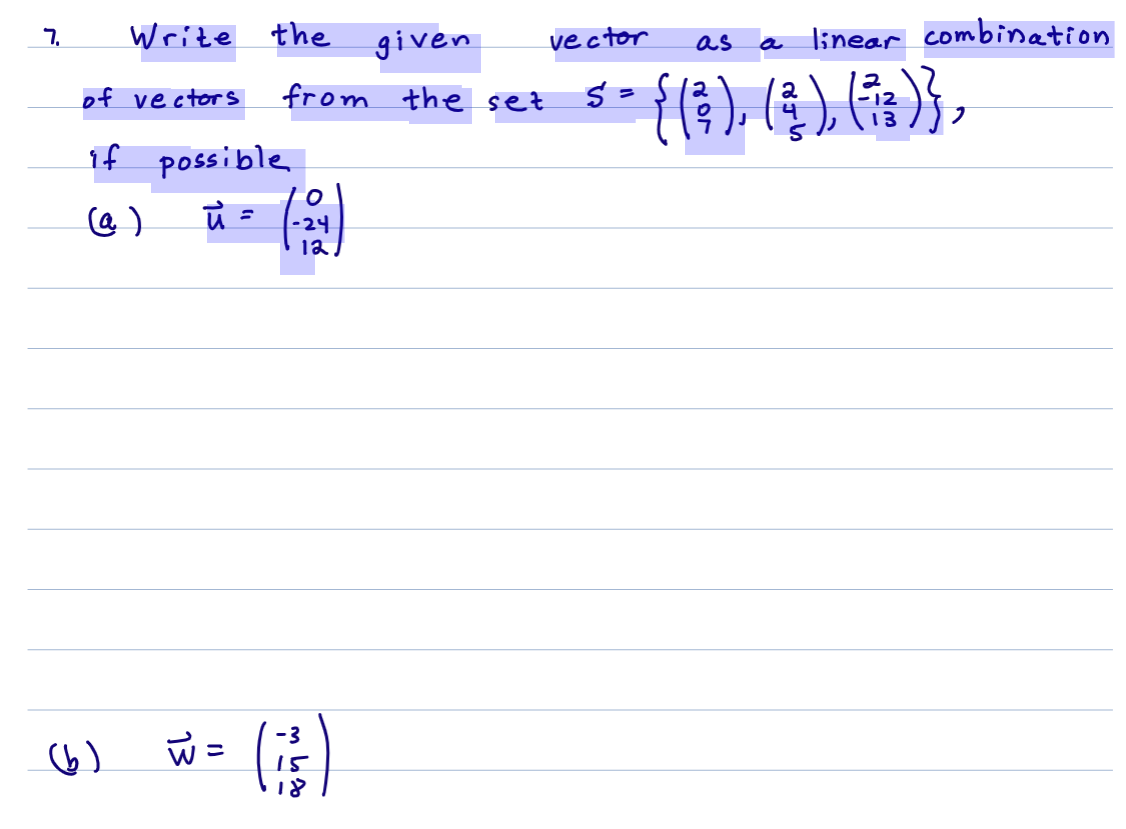 7. Write the given vector as a linear combination
of vectors from the set S = {(2 0 7), (2 4 5), (2 -12 13)},
if possible
(a) u⃗ = (0 -24 12)
(b) w⃗ = (-3 15 18)